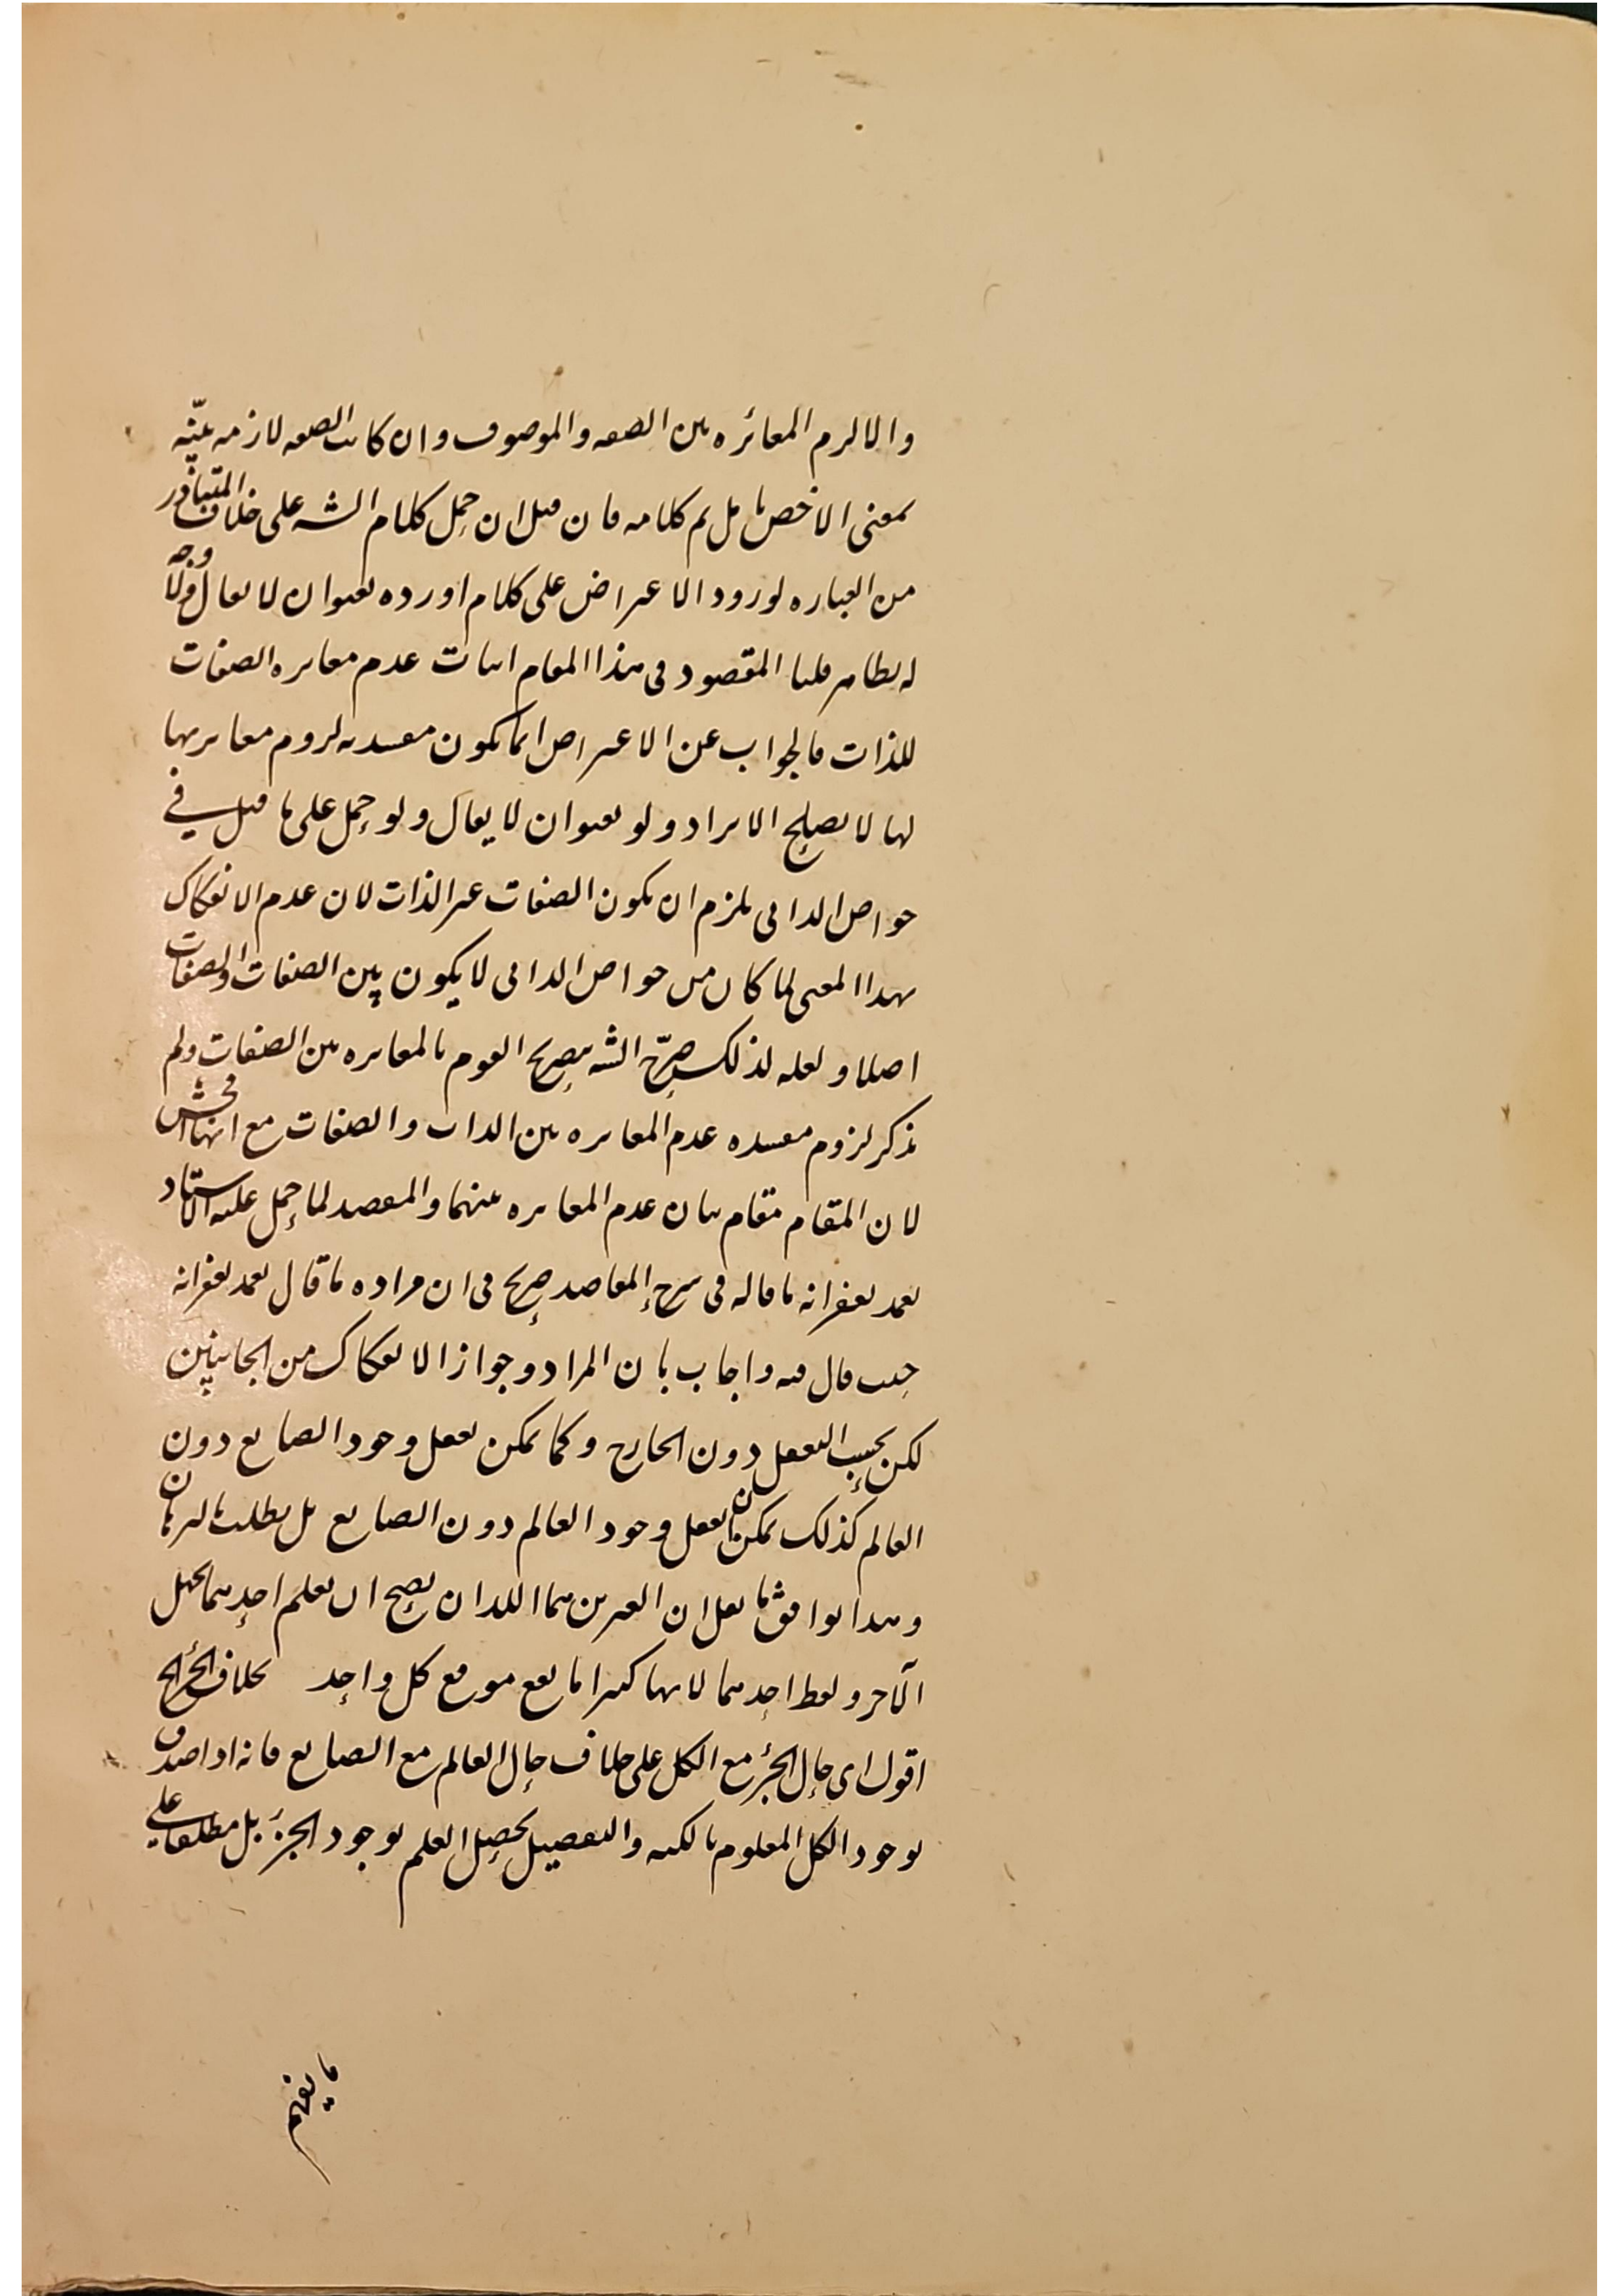 والا لزم المغائرة بين الصفة والموصوف وان كانت الصفة لازمة بينة
بمعنى الاخص تأمل تم كلامه فان قيل ان حمل كلام الشه على خلاف المتبادر
من العبارة لورود الاعتراض على كلام اورده بعنوان لا يقال ولا وجه
له يظاهر قلنا المقصود في هذا المقام اثبات عدم مغايرة الصفات
للذات فالجواب عن الاعتراض انما يكون مفسدته لزوم مغايرتها
لها لا يصلح الايراد ولو بعنوان لا يقال ولو حمل على ما قيل في
خواص الذاتي يلزم ان يكون الصفات غير الذات لان عدم الانفكاك
بهذا المعنى لما كان من خواص الذاتي لا يكون بين الصفات والصفات
اصلا ولعله لذلك صرح الشه بتصريح القوم بالمغايرة بين الصفات ولم
يذكر لزوم مفسدة عدم المغايرة بين الذات والصفات مع انها افحش
لان المقام مقام بيان عدم المغايرة بينهما والمقصد لما حمل عليه الاستاد
تغمد بغفرانه ما قاله في شرح المقاصد صريح في ان مراده ما قال تغمد بغفرانه
حيث قال فيه واجاب بان المراد وجواز الانفكاك من الجانبين
لكن بحسب التعقل دون الخارج وكما يمكن تعقل وجود الصانع دون
العالم كذلك يمكن ان تعقل وجود العالم دون الصانع بل يطلب بالبرهان
وهذا يوافق ما نقل ان الغيرين هما اللذان يصح ان يعلم احدهما يجهل
الآخر ولفظ احدهما لابهامه كثيرا ما يقع موقع كل واحد بخلاف الجزء الخ
اقول اي حال الجزء مع الكل على خلاف حال العالم مع الصانع فانه اذا صدق
بوجود الكل المعلوم بالكنه والتفصيل يحصل العلم بوجود الجزء بل مطلقا على
ما يفهم